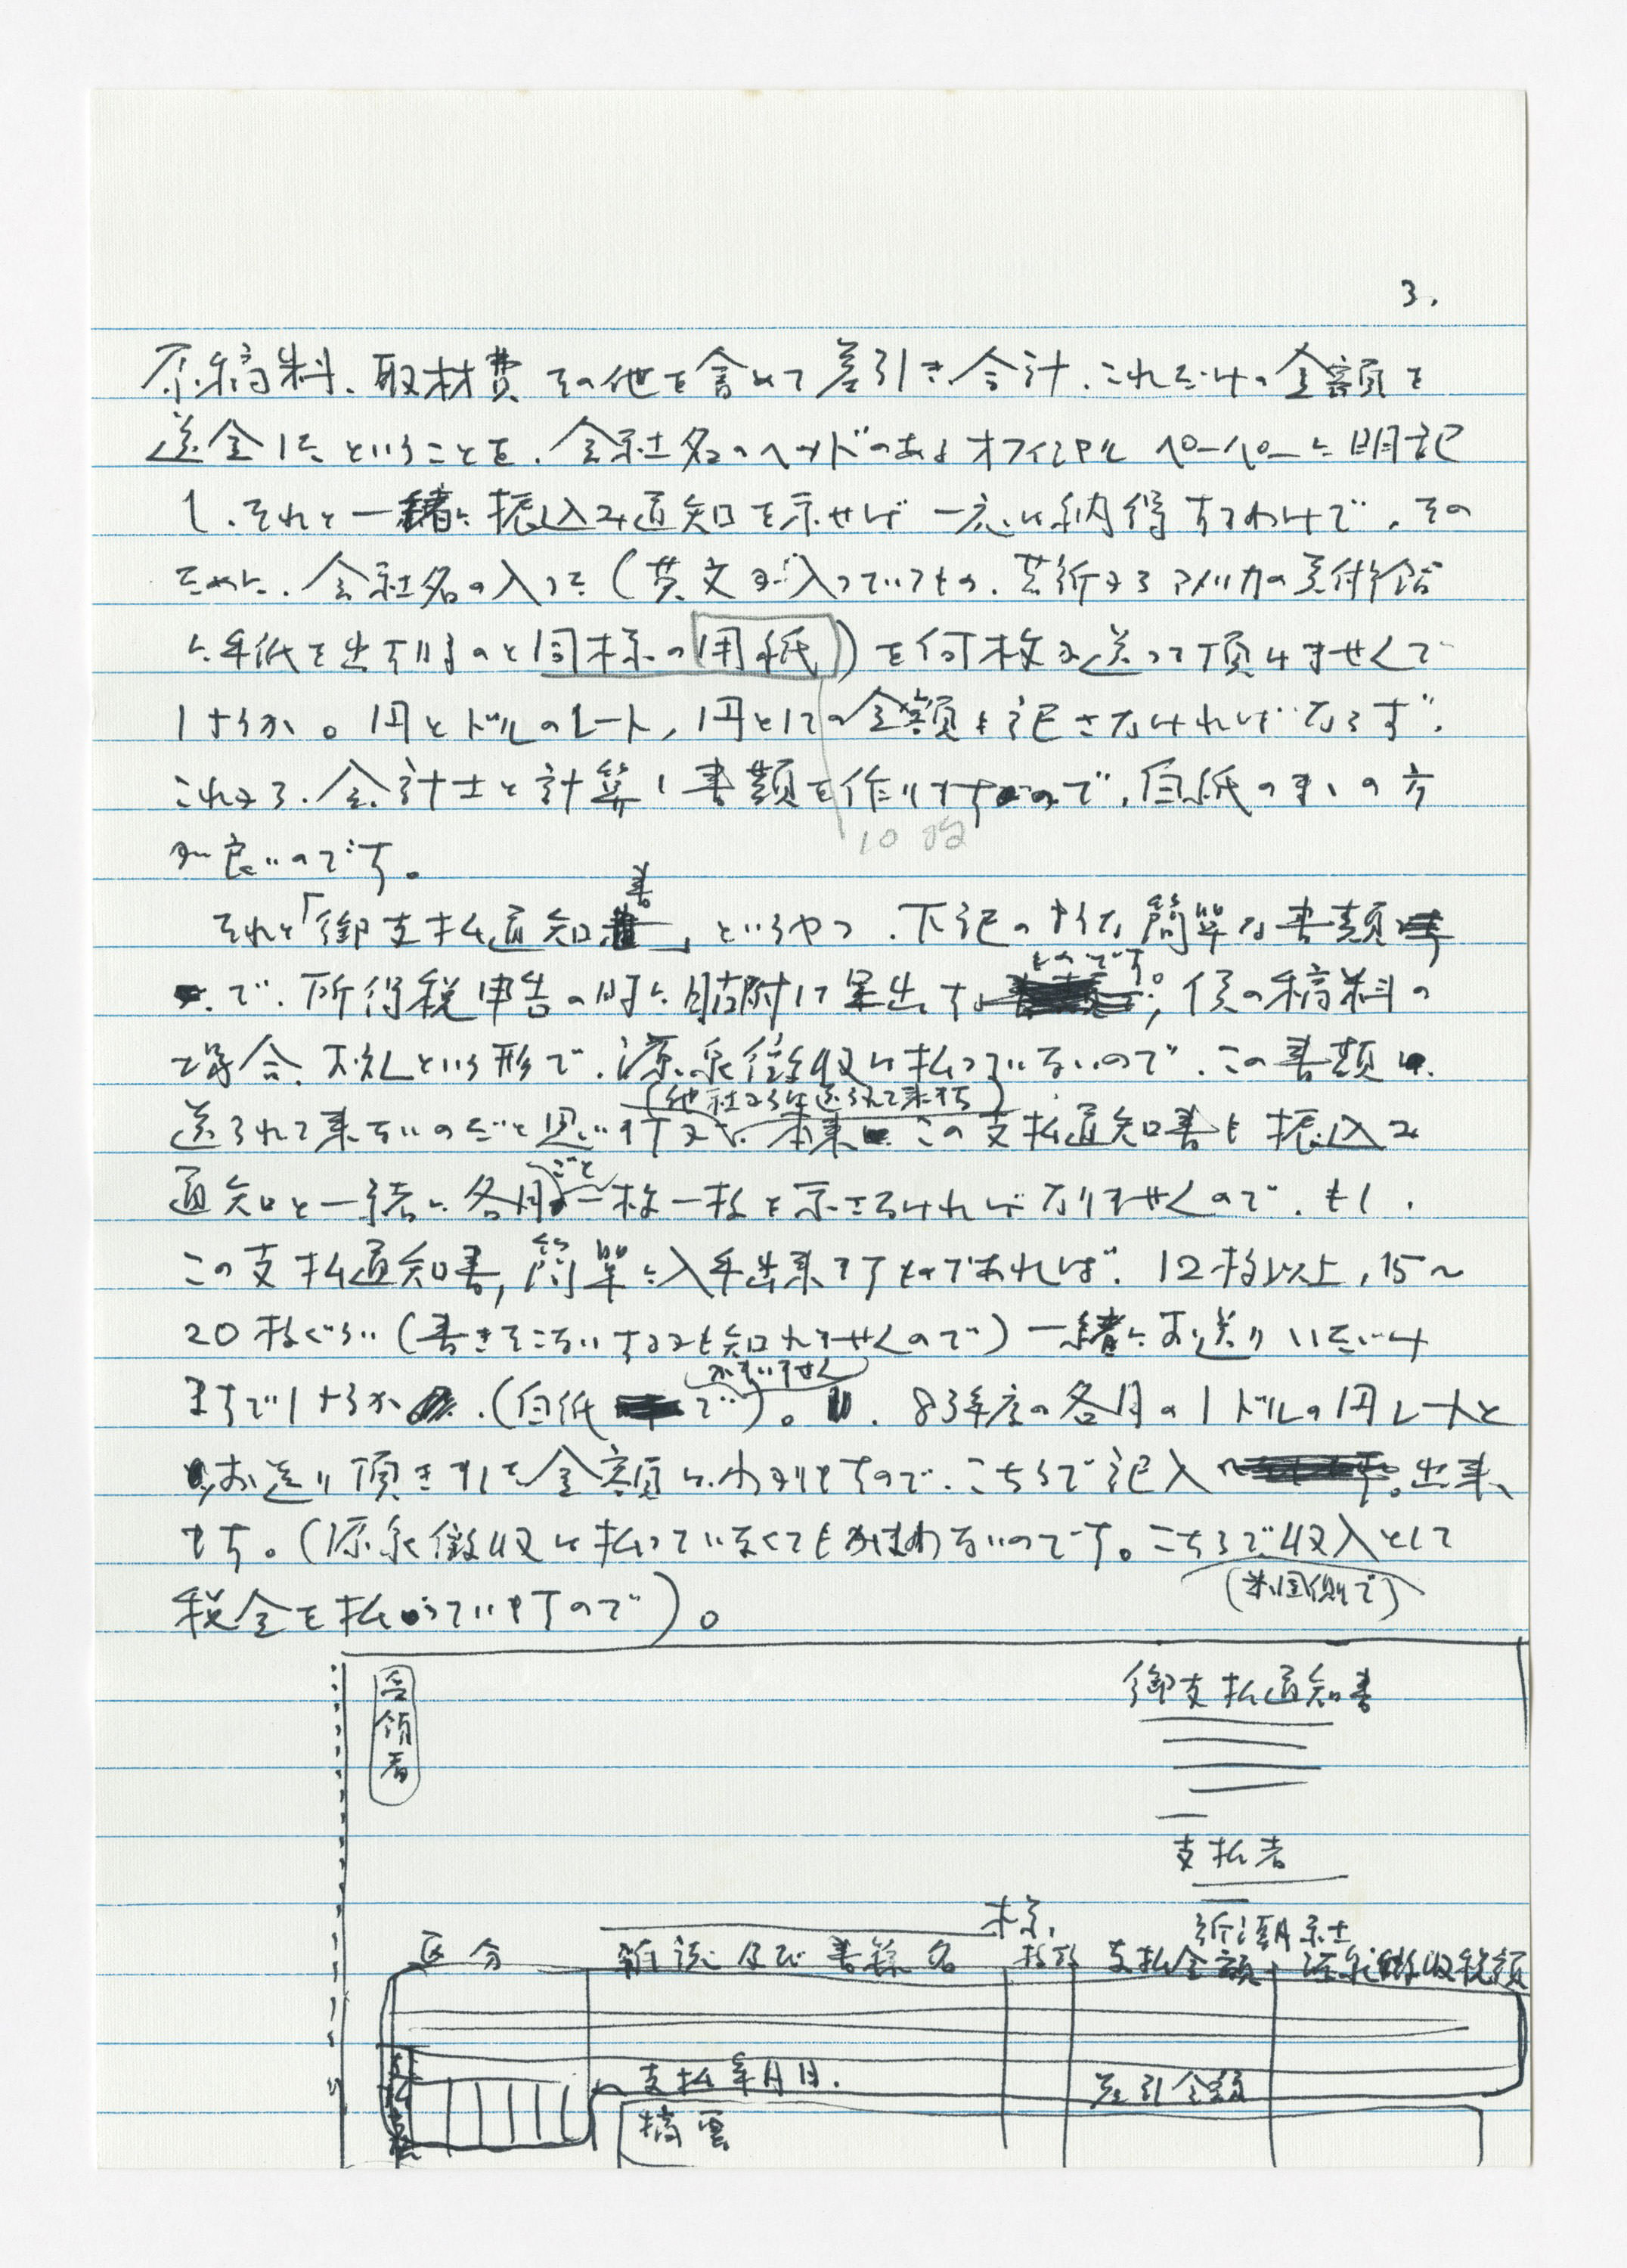 3.
原稿料、取材費、その他を含めて差引き、合計、これだけの金額を
送金したということを、会社名のヘッドのあるオフィシャルペーペーに明記
し、それと一緒に振込み通知を示せば一応は納得するわけで、その
ために、会社名の入った(英文が入っているもの、芸新からアメリカの美術館
に手紙を出す時のと同様の用紙)を何枚か送って頂けませんで
しょうか。円とドルのレート、円としての金額も記さなければならず、
これから、会計士と計算し書類を作りますので、白紙のままの方
10
が良いのです。
それと「御支払通知書」というやつ、下記のような簡単な書類
で、所得税申告の時に貼附して提出するものです。僕の稿料の
場合、お礼という形で、源泉徴収は払っていないので、この書類は
(他社から送られて来ます)
送られて来ないのだと思いますが、本来はこの支払通知書も振込み
通知と一緒に各月ごと一枚一枚を示さなければなりませんので、もし、
この支払通知書、簡単に入手出来ますものであれば、12枚以上、15〜
20枚ぐらい(書きそこないするかも知れませんので)一緒にお送りいただけ
ますでしょうか。(白紙でかまいません)。83年度の各月の1ドルの円レートと
お送り頂きました金額はわかりますので、こちらで記入出来
ます。(源泉徴収は払っていなくてもかまわないのです。こちらで収入として
(米国側で)
税金を払っていますので)。
受領者
御支払通知書
支払者
様
新潮社
区分
雑誌及び書籍名
枚数
支払金額
源泉徴収税額
支払年月日.
差引金額
摘要